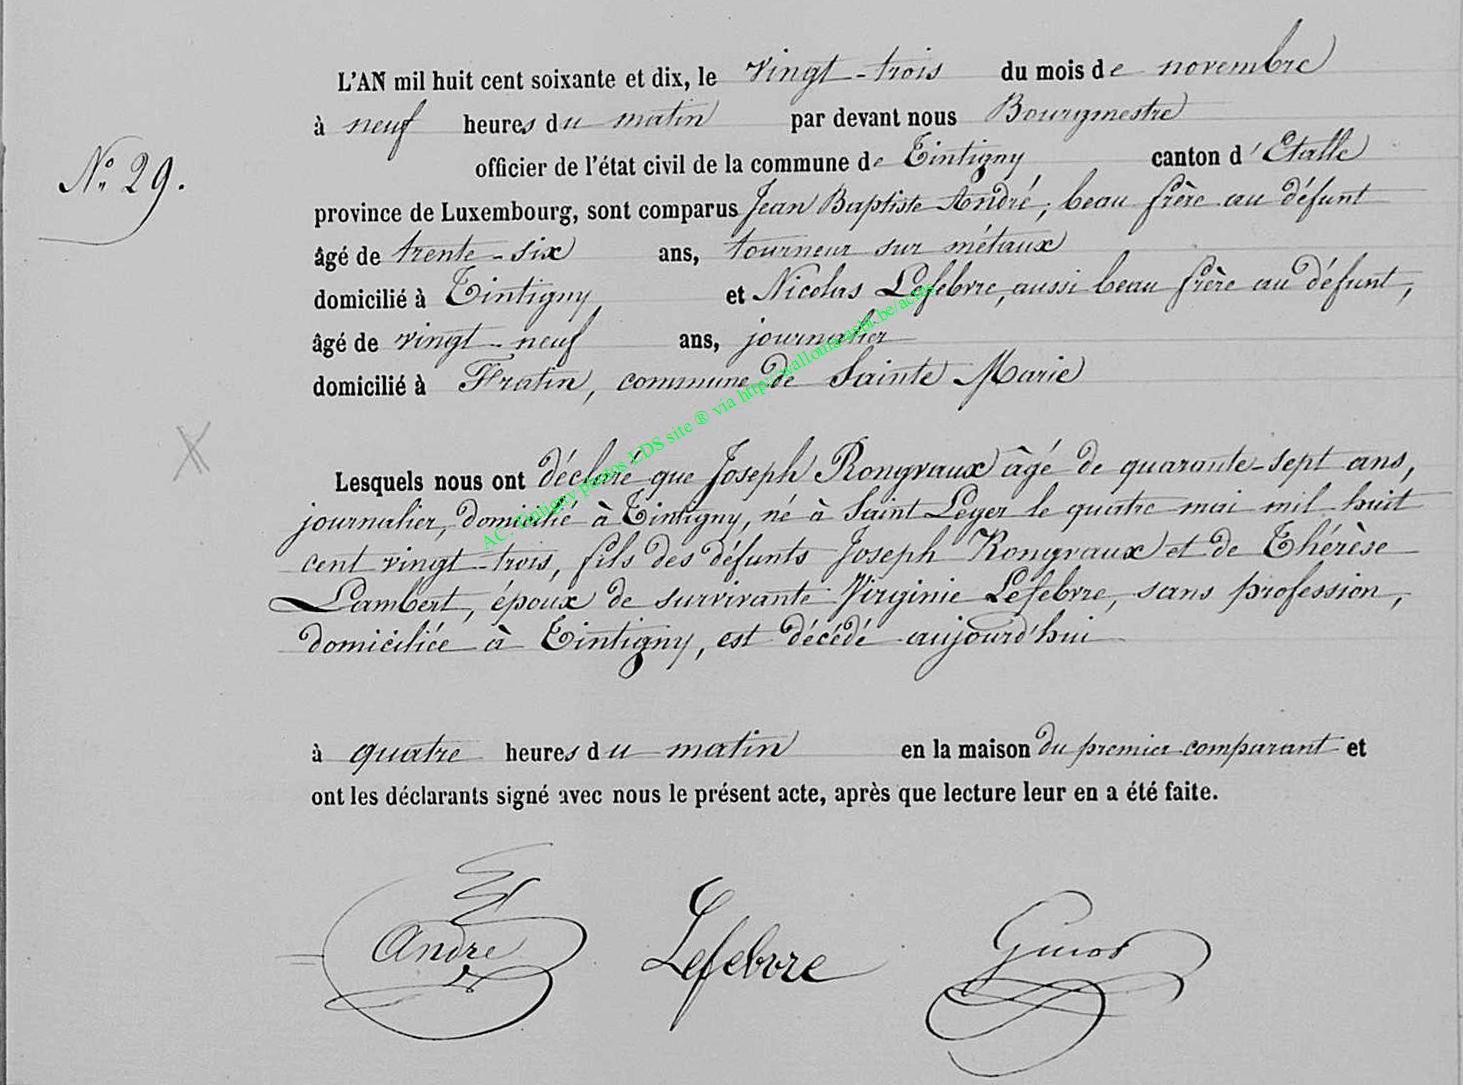 L'AN mil huit cent soixante et dix, le vingt-trois du mois de novembre
à neuf heures du matin par devant nous Bourgmestre
officier de l'état civil de la commune de Tintigny canton d'Etalle
N° 29.
province de Luxembourg, sont comparus Jean Baptiste André, beau frère au défunt
âgé de trente-six ans, tourneur sur métaux
domicilié à Tintigny et Nicolas Lefebvre, aussi beau frère au défunt,
âgé de vingt-neuf ans, journalier
domicilié à Fratin, commune de Sainte Marie
AC. Tintigny photos LDS site ® via http://wallonia-asbl.be/actes
Lesquels nous ont déclaré que Joseph Rongvaux âgé de quarante-sept ans,
journalier, domicilié à Tintigny, né à Saint Léger le quatre mai mil huit
cent vingt-trois, fils des défunts Joseph Rongvaux et de Thérèse
Lambert, époux de survivante Virginie Lefebvre, sans profession,
domiciliée à Tintigny, est décédé aujourd'hui
à quatre heures du matin en la maison du premier comparant et
ont les déclarants signé avec nous le présent acte, après que lecture leur en a été faite.
André Lefebvre